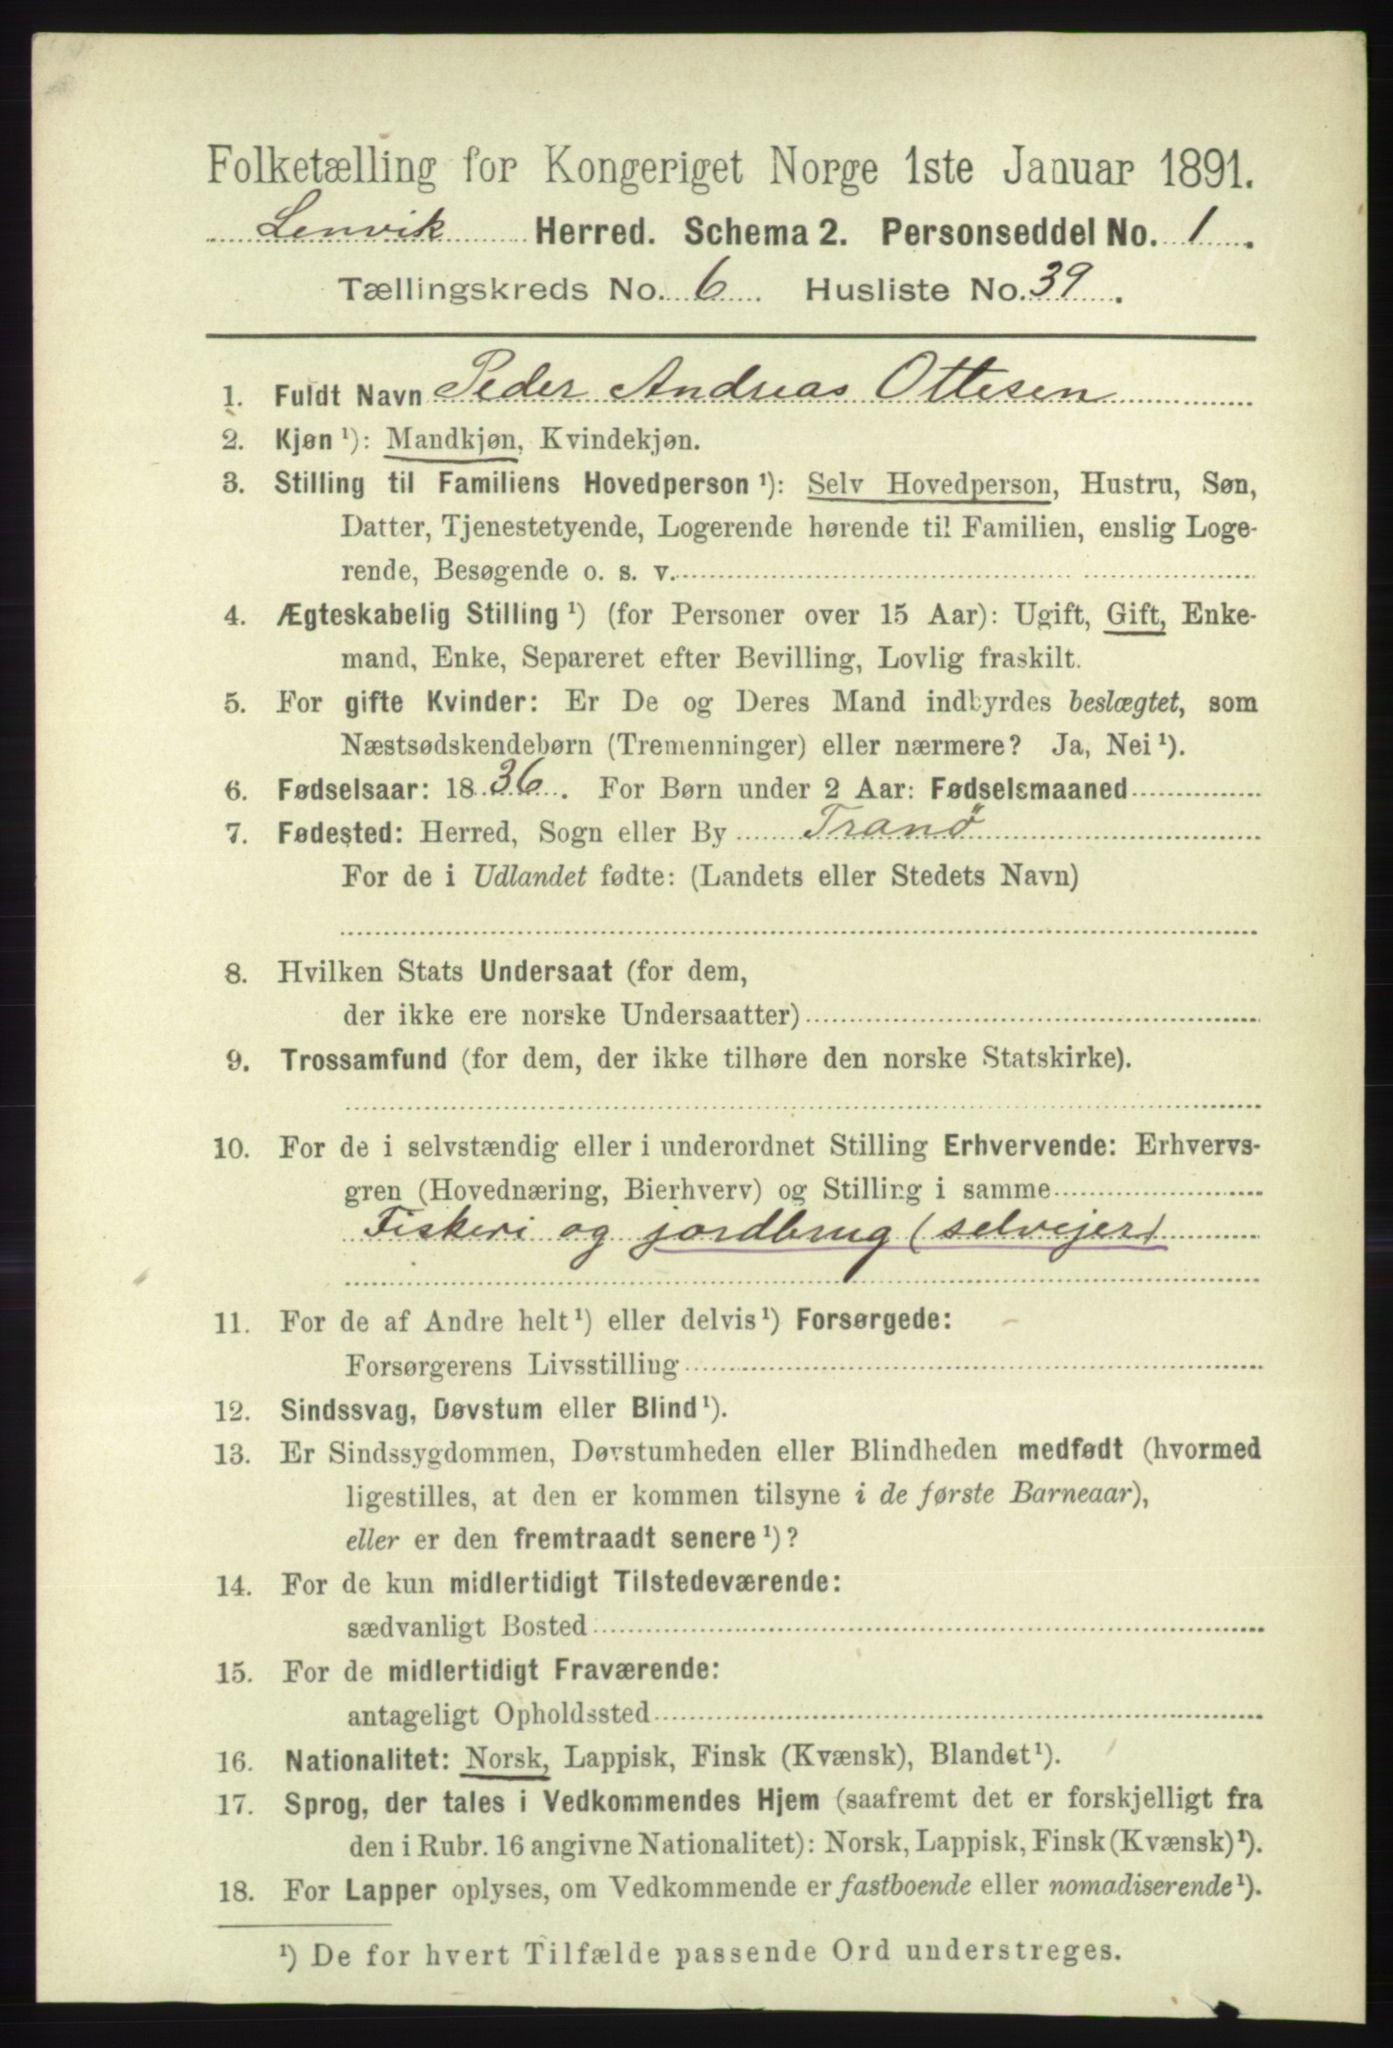 Folketælling for Kongeriget Norge 1ste Januar 1891.
Lenvik Herred. Schema 2. Personseddel No. 1.
Tællingskreds No. 6. Husliste No. 39.
1. Fuldt Navn Peder Andreas Ottesen
2. Kjøn ¹): Mandkjøn, Kvindekjøn.
3. Stilling til Familiens Hovedperson ¹): Selv Hovedperson, Hustru, Søn,
Datter, Tjenestetyende, Logerende hørende til Familien, enslig Loge-
rende, Besøgende o. s. v.
4. Ægteskabelig Stilling ¹) (for Personer over 15 Aar): Ugift, Gift, Enke-
mand, Enke, Separeret efter Bevilling, Lovlig fraskilt.
5. For gifte Kvinder: Er De og Deres Mand indbyrdes beslægtet, som
Næstsødskendebørn (Tremenninger) eller nærmere? Ja, Nei ¹).
6. Fødselsaar: 1836. For Børn under 2 Aar: Fødselsmaaned
7. Fødested: Herred, Sogn eller By Tranø
For de i Udlandet fødte: (Landets eller Stedets Navn)
8. Hvilken Stats Undersaat (for dem,
der ikke ere norske Undersaatter)
9. Trossamfund (for dem, der ikke tilhøre den norske Statskirke).
10. For de i selvstændig eller i underordnet Stilling Erhvervende: Erhvervs-
gren (Hovednæring, Bierhverv) og Stilling i samme
Fiskeri og jordbrug (selvejer)
11. For de af Andre helt ¹) eller delvis ¹) Forsørgede:
Forsørgerens Livsstilling
12. Sindssvag, Døvstum eller Blind ¹).
13. Er Sindssygdommen, Døvstumheden eller Blindheden medfødt (hvormed
ligestilles, at den er kommen tilsyne i de første Barneaar),
eller er den fremtraadt senere ¹)?
14. For de kun midlertidigt Tilstedeværende:
sædvanligt Bosted
15. For de midlertidigt Fraværende:
antageligt Opholdssted
16. Nationalitet: Norsk, Lappisk, Finsk (Kvænsk), Blandet ¹).
17. Sprog, der tales i Vedkommendes Hjem (saafremt det er forskjelligt fra
den i Rubr. 16 angivne Nationalitet): Norsk, Lappisk, Finsk (Kvænsk) ¹).
18. For Lapper oplyses, om Vedkommende er fastboende eller nomadiserende ¹).
¹) De for hvert Tilfælde passende Ord understreges.